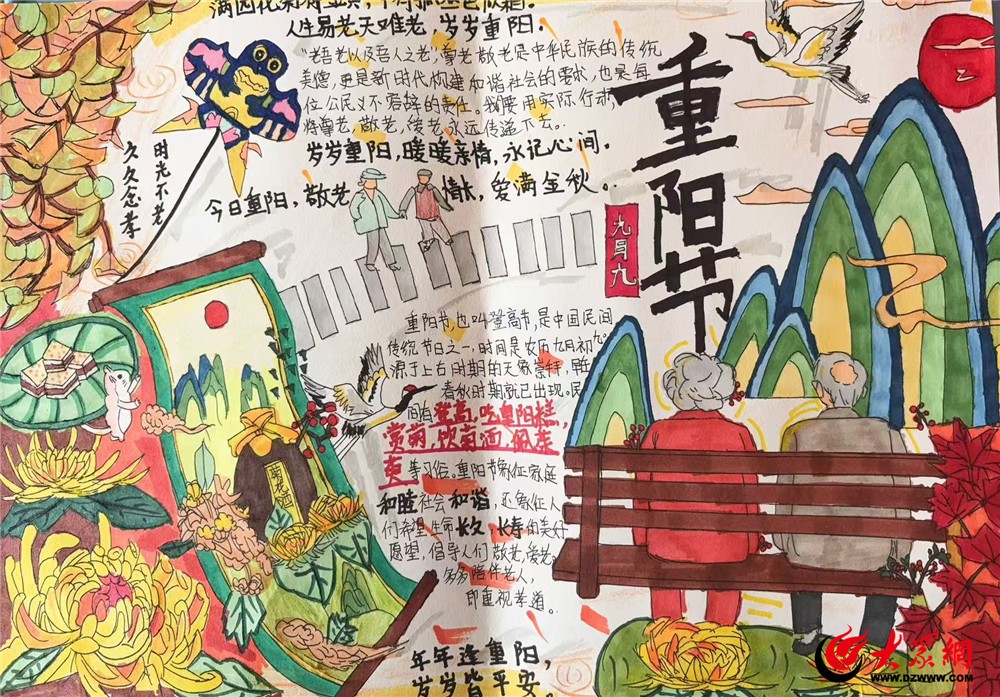 人生易老天难老，岁岁重阳。
"老吾老以及吾人之老"，尊老敬老是中华民族的传统
美德，更是新时代构建和谐社会的需求，也是每
位公民义不容辞的责任。我要用实际行动，
将尊老，敬老，爱老永远传递下去。
岁岁重阳，暖暖亲情，永记心间。
今日重阳，敬老
情怀，爱满金秋。
时光不老
久久念孝
重阳节
九月九
重阳节，也叫登高节，是中国民间
传统节日之一，时间是农历九月初九。
源于上古时期的天象崇拜，
春秋时期就已出现。民
间有登高，吃重阳糕，
赏菊，饮菊酒，佩茱
萸等习俗。重阳节象征家庭
和睦社会和谐，还象征人
们希望生命长久，长寿的美好
愿望，倡导人们敬老，爱老。
多多陪伴老人，
即重视孝道。
年年逢重阳，
岁岁皆平安。
大众网
WWW.DZWWW.COM